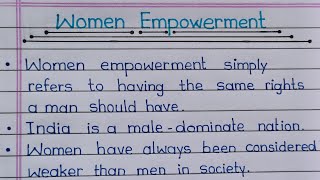 Women Empowerment
• Women empowerment simply
refers to having the same rights
a man should have.
• India is a male-dominate nation.
• Women have always been considered
weaker than men in society.